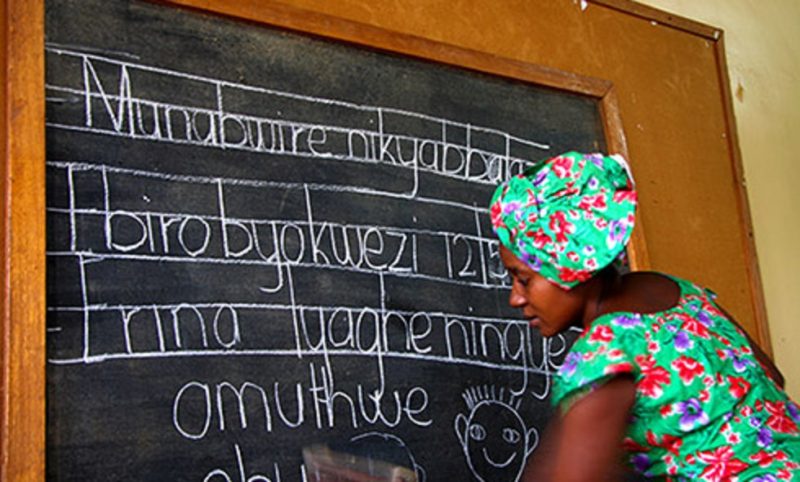 Munabwire nikyabbala
Ebiro byokwezi
Erina lyaghe ningye
omuthwe